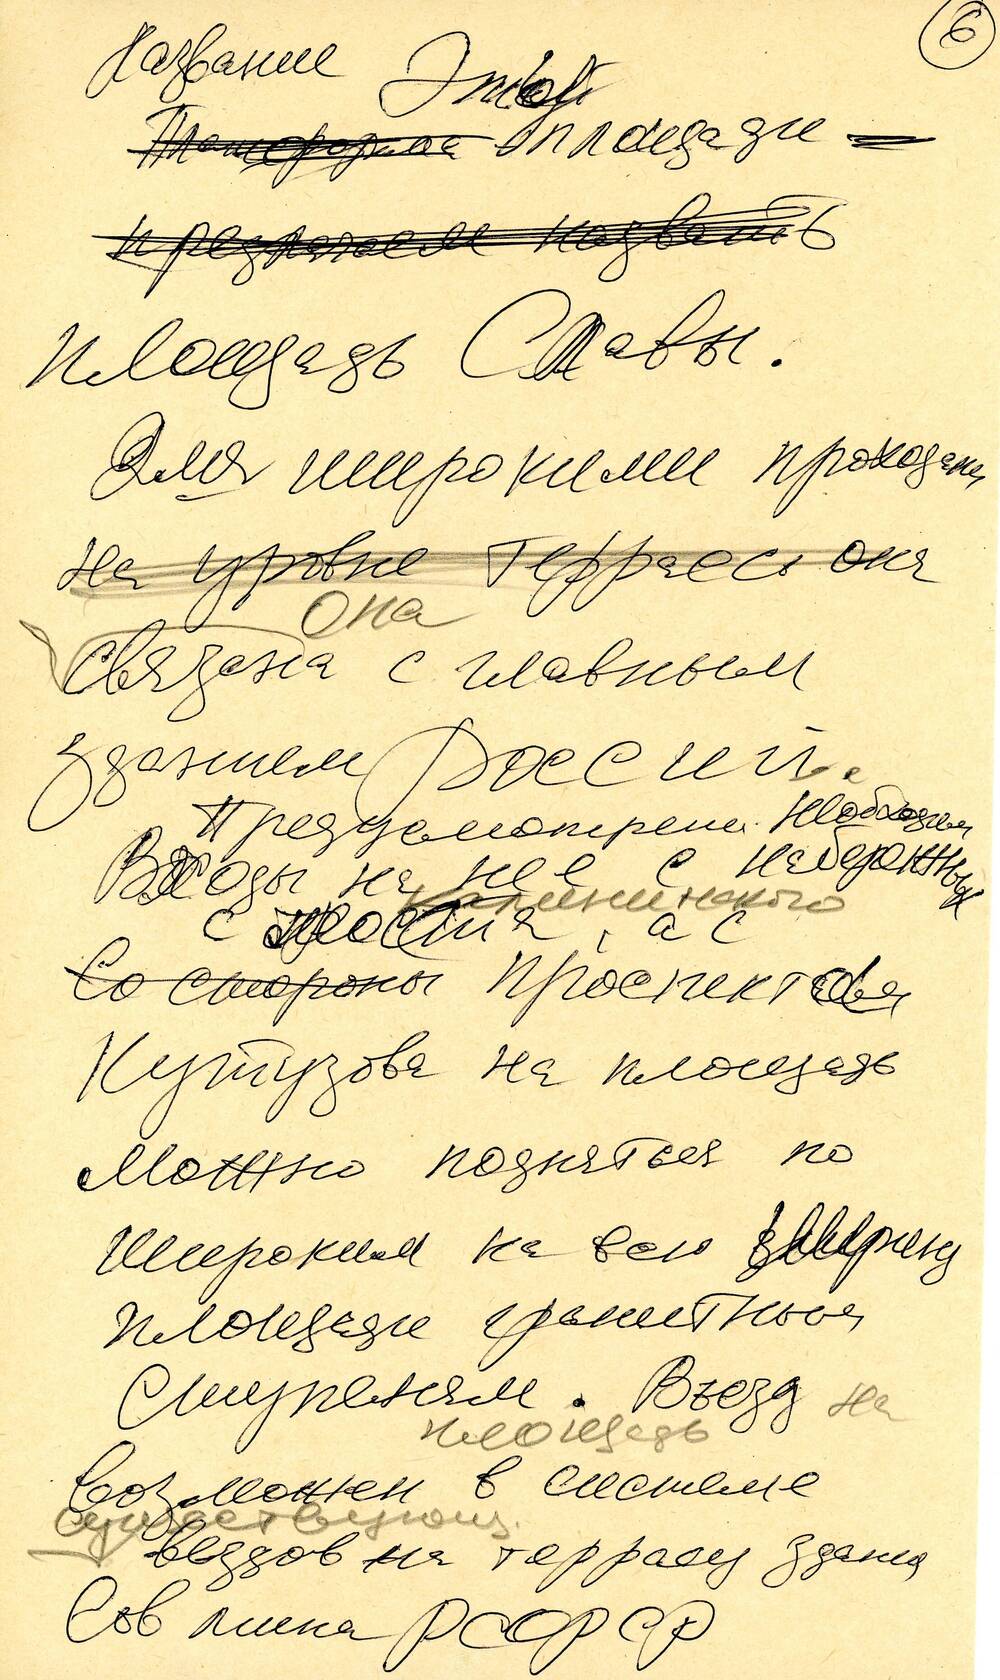 6
Название Этой
Платформа площади —
предлагаем назвать
площадь Славы.
Для широкими проходами
на уровне террасы она
она
связана с главным
зданием России.
Предусмотрены необходим
Входы на нее с набережных
Калининского
с моста, а с
Со стороны проспекта
Кутузова на площадь
можно подняться по
широким на всю ширину
площади гранитным
ступеням. Въезд на
площадь
возможен в системе
существующ.
въездов на террасу здания
Сов мина РСФСР